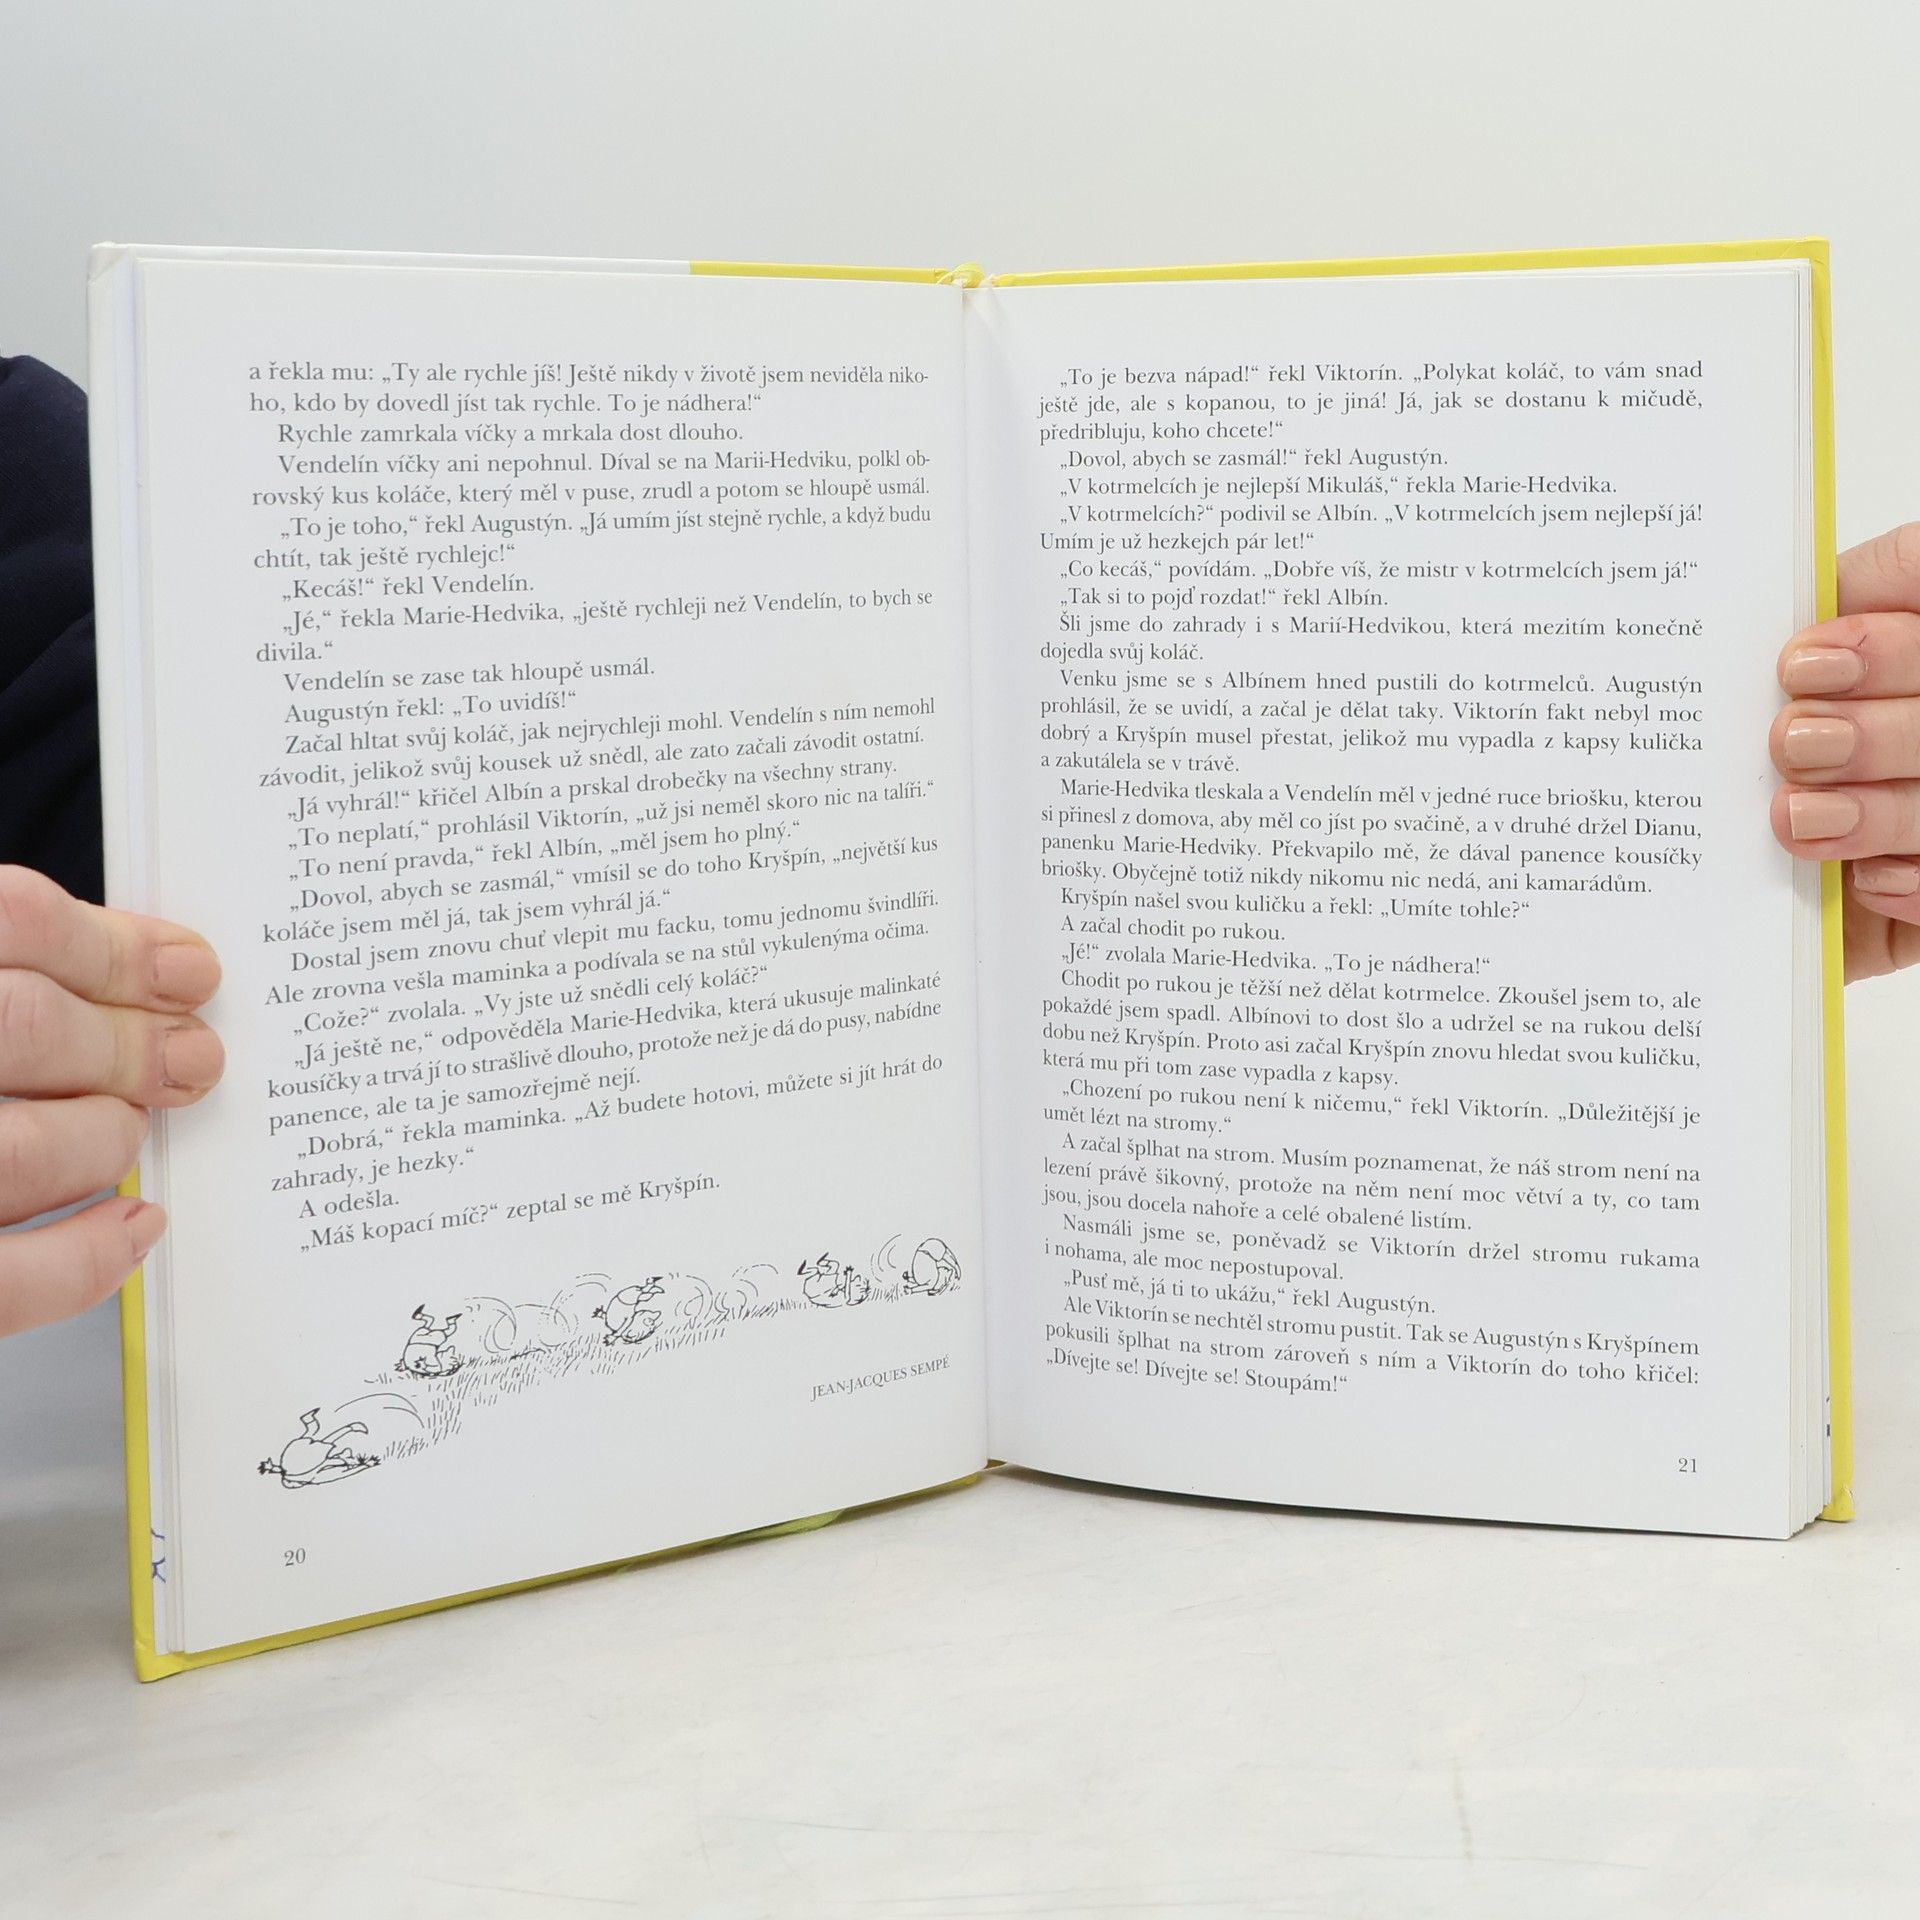 a řekla mu: „Ty ale rychle jíš! Ještě nikdy v životě jsem neviděla niko-
ho, kdo by dovedl jíst tak rychle. To je nádhera!“
Rychle zamrkala víčky a mrkala dost dlouho.
Vendelín víčky ani nepohnul. Díval se na Marii-Hedviku, polkl ob-
rovský kus koláče, který měl v puse, zrudl a potom se hloupě usmál.
„To je toho,“ řekl Augustýn. „Já umím jíst stejně rychle, a když budu
chtít, tak ještě rychlejc!“
„Kecáš!“ řekl Vendelín.
„Jé,“ řekla Marie-Hedvika, „ještě rychleji než Vendelín, to bych se
divila.“
Vendelín se zase tak hloupě usmál.
Augustýn řekl: „To uvidíš!“
Začal hltat svůj koláč, jak nejrychleji mohl. Vendelín s ním nemohl
závodit, jelikož svůj kousek už snědl, ale zato začali závodit ostatní.
„Já vyhrál!“ křičel Albín a prskal drobečky na všechny strany.
„To neplatí,“ prohlásil Viktorín, „už jsi neměl skoro nic na talíři.“
„To není pravda,“ řekl Albín, „měl jsem ho plný.“
„Dovol, abych se zasmál,“ vmísil se do toho Kryšpín, „největší kus
koláče jsem měl já, tak jsem vyhrál já.“
Dostal jsem znovu chuť vlepit mu facku, tomu jednomu švindlíři.
Ale zrovna vešla maminka a podívala se na stůl vykulenýma očima.
„Cože?“ zvolala. „Vy jste už snědli celý koláč?“
„Já ještě ne,“ odpověděla Marie-Hedvika, která ukusuje malinkaté
kousíčky a trvá jí to strašlivě dlouho, protože než je dá do pusy, nabídne
panence, ale ta je samozřejmě nejí.
„Dobrá,“ řekla maminka. „Až budete hotovi, můžete si jít hrát do
zahrady, je hezky.“
A odešla.
„Máš kopací míč?“ zeptal se mě Kryšpín.
JEAN-JACQUES SEMPÉ
20
„To je bezva nápad!“ řekl Viktorín. „Polykat koláč, to vám snad
ještě jde, ale s kopanou, to je jiná! Já, jak se dostanu k mičudě,
předribluju, koho chcete!“
„Dovol, abych se zasmál!“ řekl Augustýn.
„V kotrmelcích je nejlepší Mikuláš,“ řekla Marie-Hedvika.
„V kotrmelcích?“ podivil se Albín. „V kotrmelcích jsem nejlepší já!
Umím je už hezkejch pár let!“
„Co kecáš,“ povídám. „Dobře víš, že mistr v kotrmelcích jsem já!“
„Tak si to pojď rozdat!“ řekl Albín.
Šli jsme do zahrady i s Marií-Hedvikou, která mezitím konečně
dojedla svůj koláč.
Venku jsme se s Albínem hned pustili do kotrmelců. Augustýn
prohlásil, že se uvidí, a začal je dělat taky. Viktorín fakt nebyl moc
dobrý a Kryšpín musel přestat, jelikož mu vypadla z kapsy kulička
a zakutálela se v trávě.
Marie-Hedvika tleskala a Vendelín měl v jedné ruce briošku, kterou
si přinesl z domova, aby měl co jíst po svačině, a v druhé držel Dianu,
panenku Marie-Hedviky. Překvapilo mě, že dával panence kousíčky
briošky. Obyčejně totiž nikdy nikomu nic nedá, ani kamarádům.
Kryšpín našel svou kuličku a řekl: „Umíte tohle?“
A začal chodit po rukou.
„Jé!“ zvolala Marie-Hedvika. „To je nádhera!“
Chodit po rukou je těžší než dělat kotrmelce. Zkoušel jsem to, ale
pokaždé jsem spadl. Albínovi to dost šlo a udržel se na rukou delší
dobu než Kryšpín. Proto asi začal Kryšpín znovu hledat svou kuličku,
která mu při tom zase vypadla z kapsy.
„Chození po rukou není k ničemu,“ řekl Viktorín. „Důležitější je
umět lézt na stromy.“
A začal šplhat na strom. Musím poznamenat, že náš strom není na
lezení právě šikovný, protože na něm není moc větví a ty, co tam
jsou, jsou docela nahoře a celé obalené listím.
Nasmáli jsme se, poněvadž se Viktorín držel stromu rukama
i nohama, ale moc nepostupoval.
„Pusť mě, já ti to ukážu,“ řekl Augustýn.
Ale Viktorín se nechtěl stromu pustit. Tak se Augustýn s Kryšpínem
pokusili šplhat na strom zároveň s ním a Viktorín do toho křičel:
„Dívejte se! Dívejte se! Stoupám!“
21